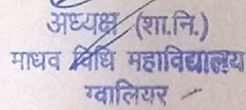 अध्यक्ष (शा.नि.)
माधव विधि महाविद्यालय
ग्वालियर